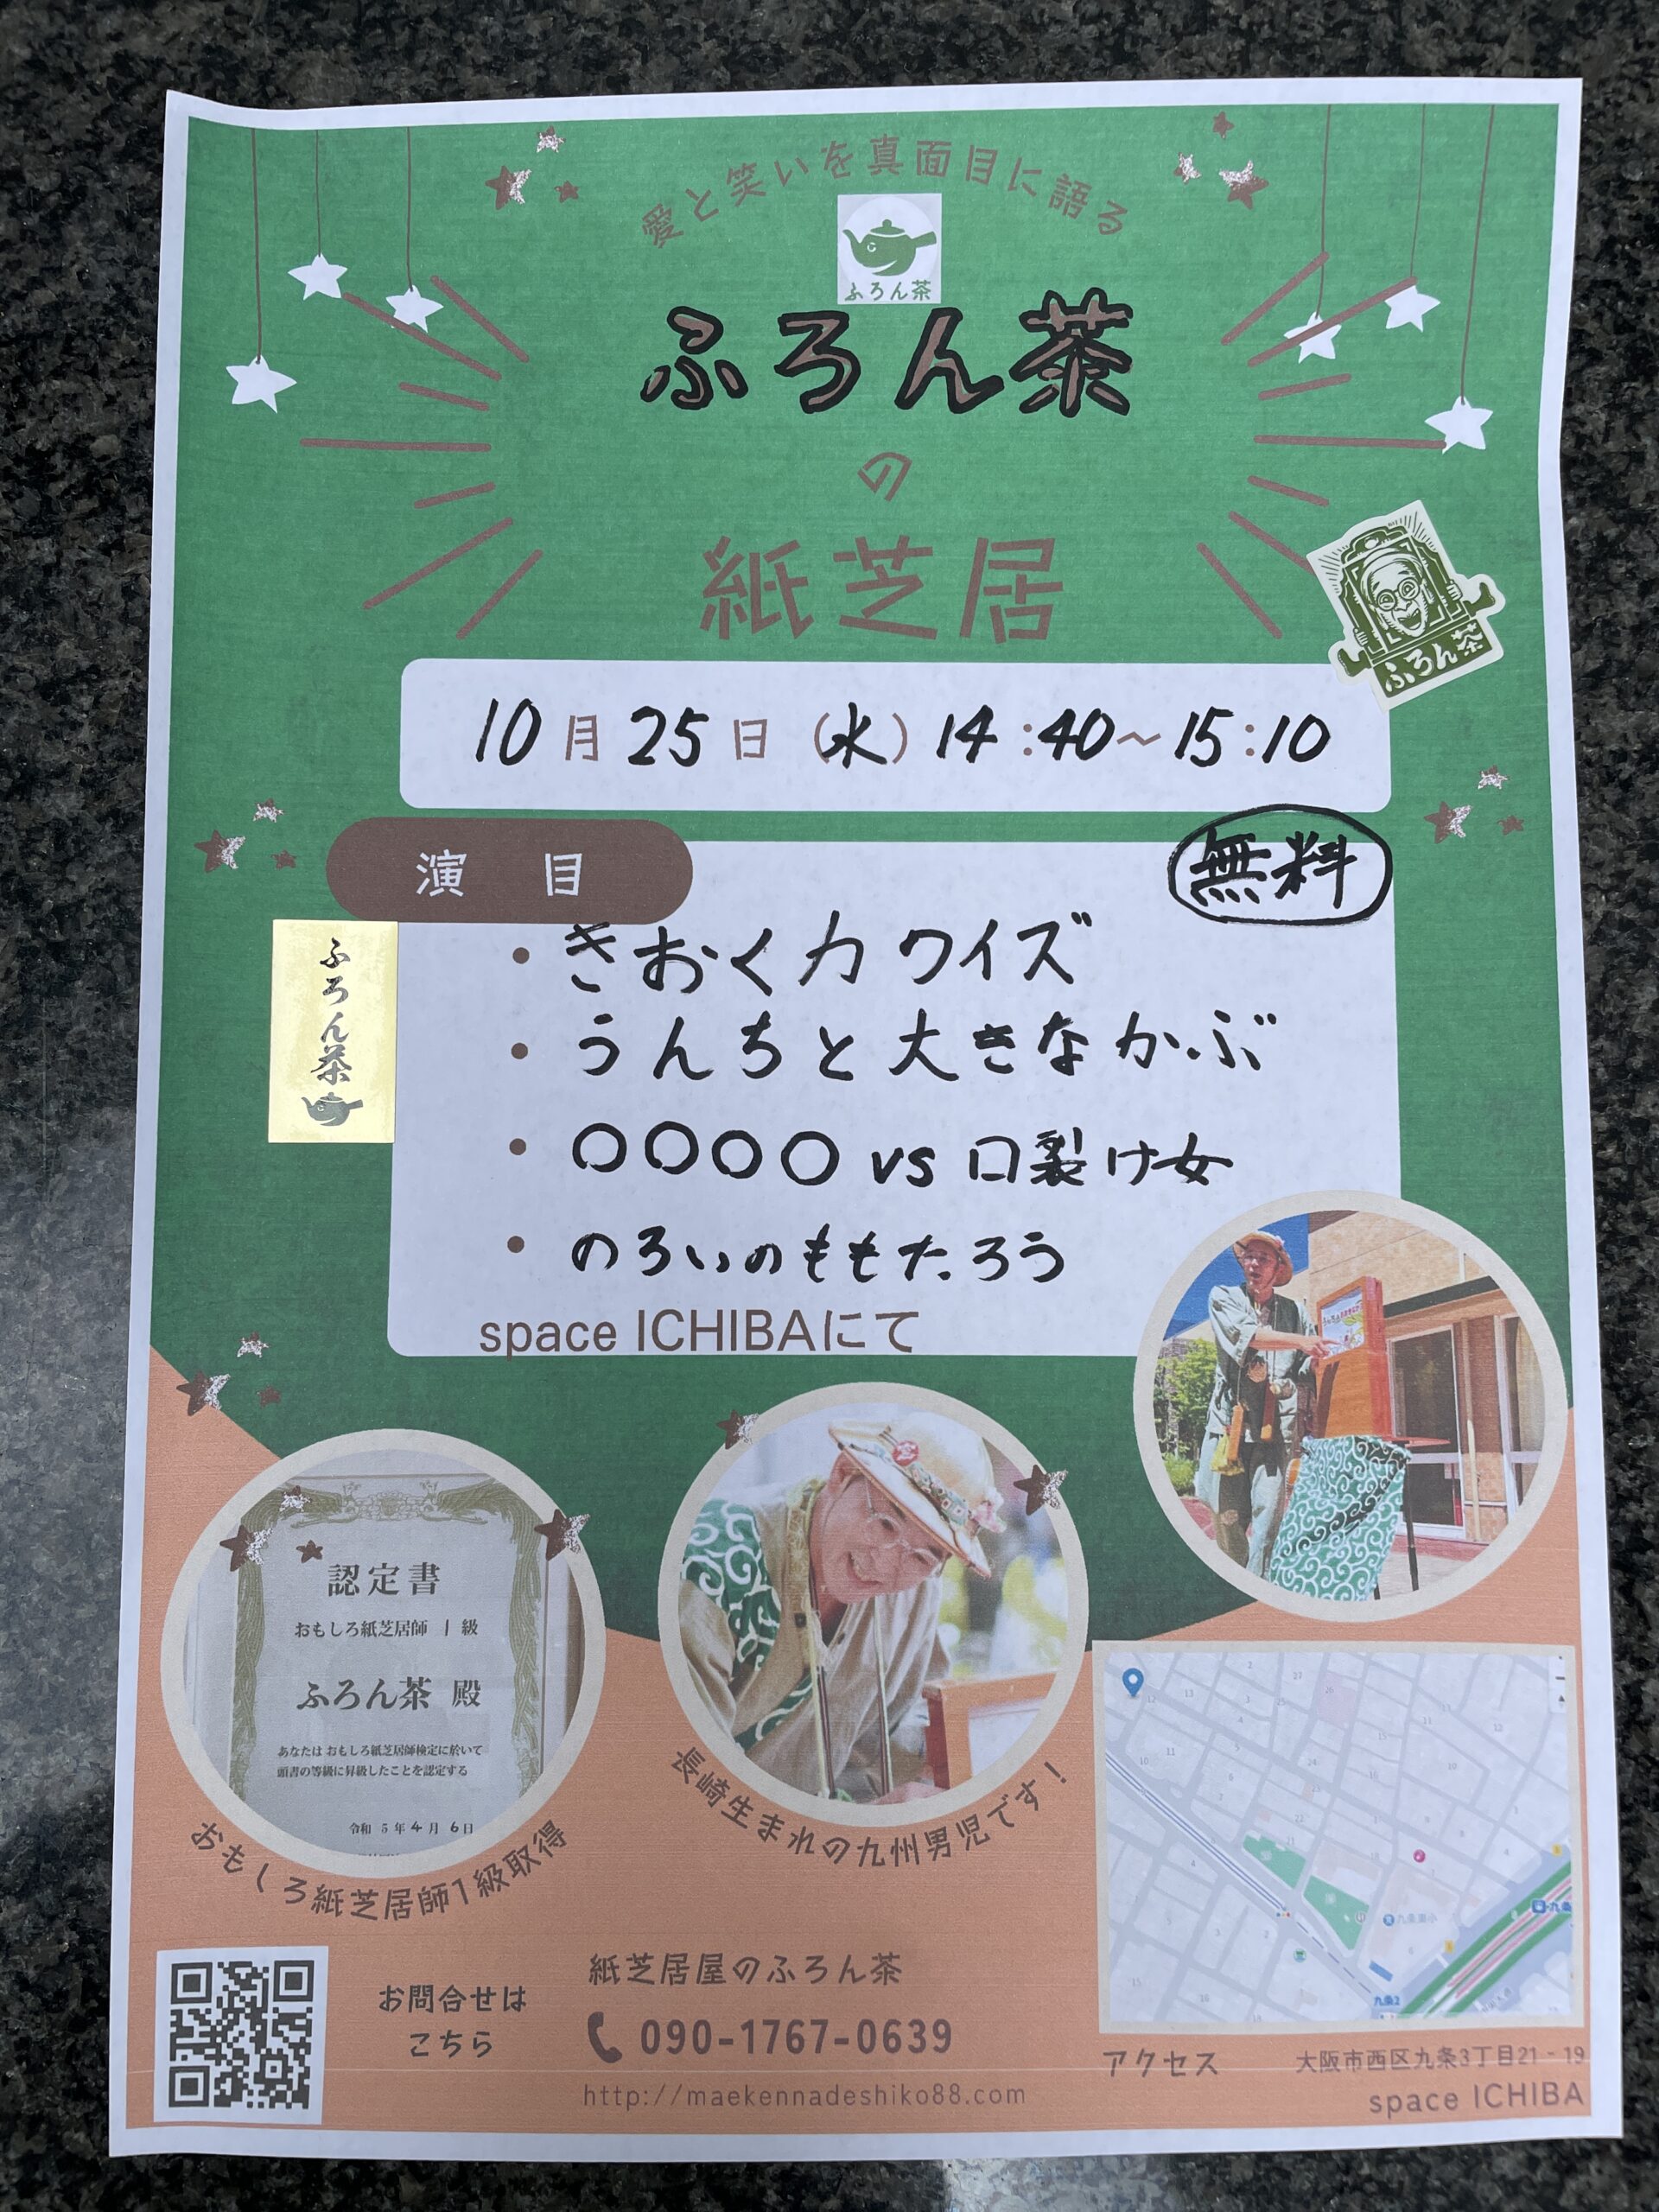 愛と笑いを真面目に語る
ふろん茶
ふろん茶
の
紙芝居
ふろん茶
10月25日(水)14:40~15:10
演目
無料
ふろん茶
・きおく力クイズ
・うんちと大きなかぶ
・〇〇〇〇 vs 口裂け女
・のろいのももたろう
space ICHIBAにて
認定書
おもしろ紙芝居師 1級
ふろん茶 殿
あなたは おもしろ紙芝居師検定に於いて
頭書の等級に昇級したことを認定する
令和 5年4月6日
おもしろ紙芝居師1級取得
長崎生まれの九州男児です!
お問合せは
こちら
紙芝居屋のふろん茶
090-1767-0639
http://maekennadeshiko88.com
九条東小
九条2
アクセス
大阪市西区九条3丁目21-19
space ICHIBA